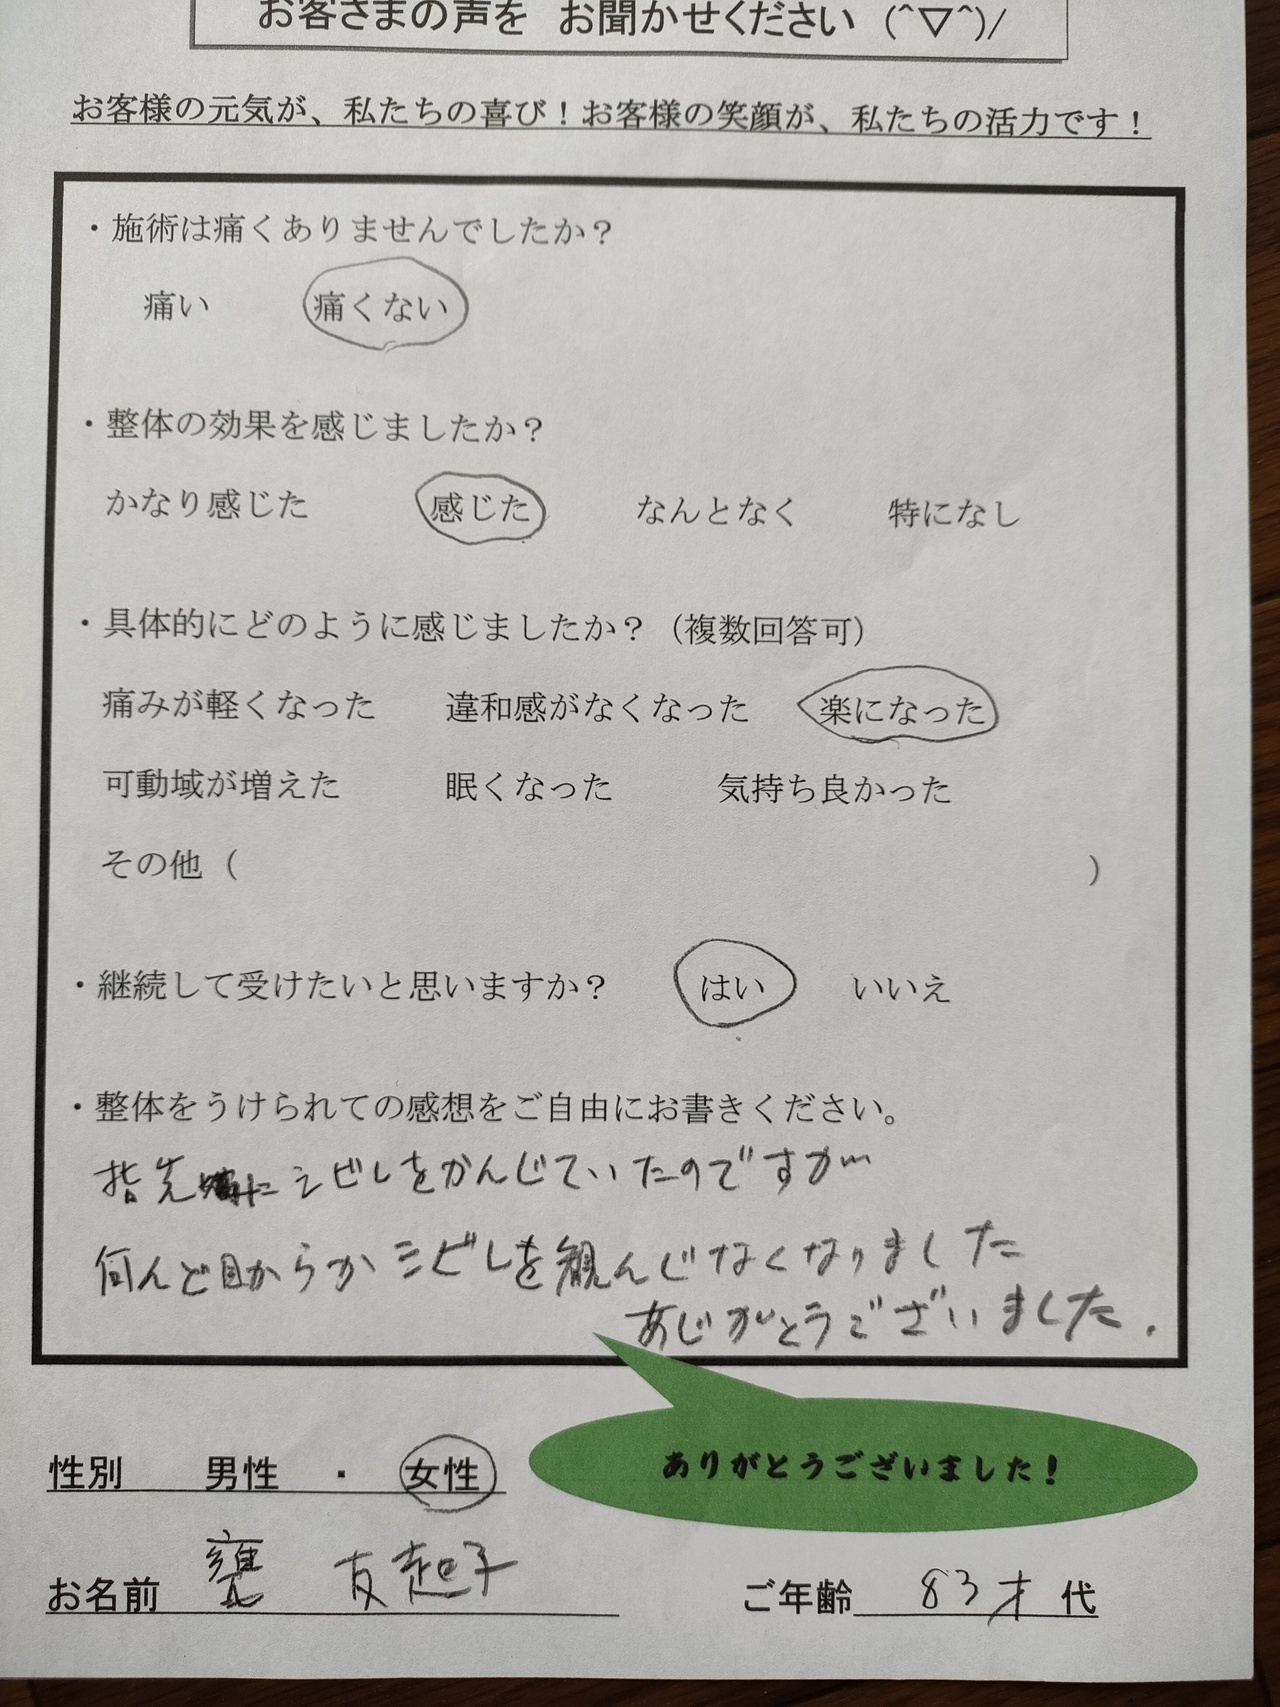 お客さまの声を お聞かせください (^▽^)/
お客様の元気が、私たちの喜び！お客様の笑顔が、私たちの活力です！
・施術は痛くありませんでしたか？
痛い 痛くない
・整体の効果を感じましたか？
かなり感じた 感じた なんとなく 特になし
・具体的にどのように感じましたか？（複数回答可）
痛みが軽くなった 違和感がなくなった 楽になった
可動域が増えた 眠くなった 気持ち良かった
その他（ ）
・継続して受けたいと思いますか？ はい いいえ
・整体をうけられての感想をご自由にお書きください。
指先に シビレをかんじていたのですが
何んど目からか シビレを観んじなくなりました
ありがとうございました.
ありがとうございました！
性別 男性 ・ 女性
お名前 甕 友起子
ご年齢 83才 代